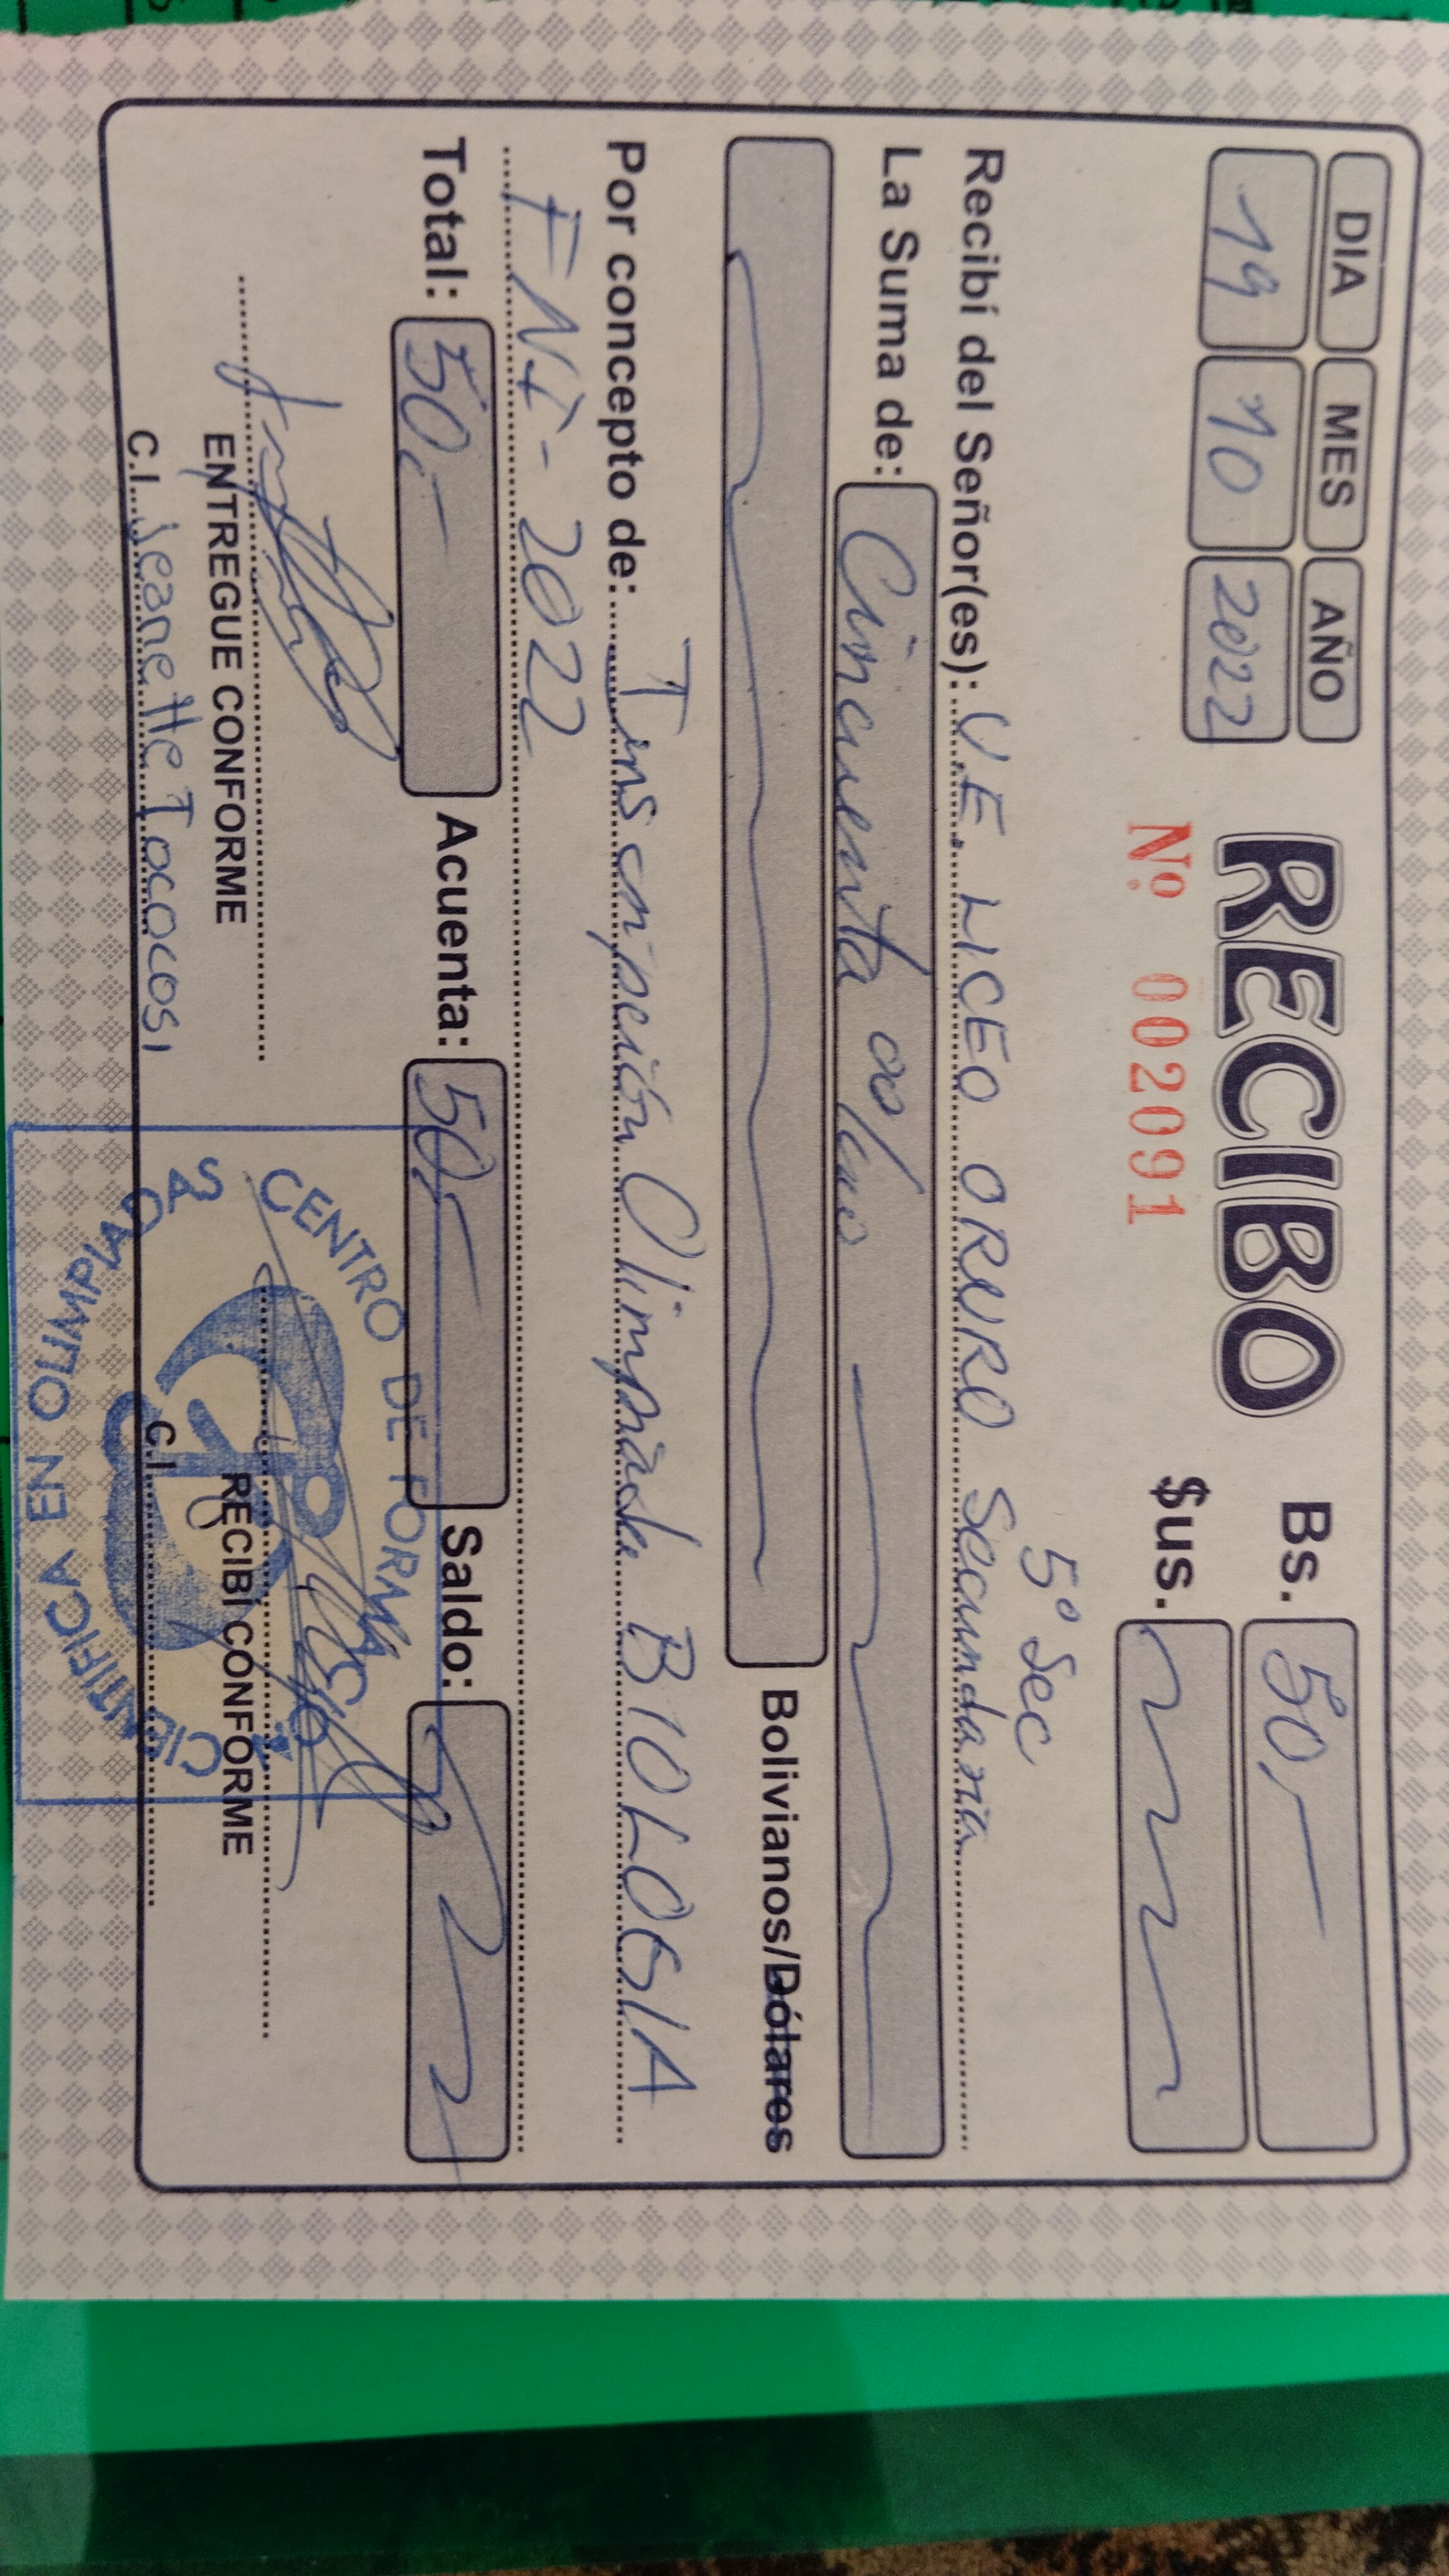 DIA MES AÑO
19 10 2022
RECIBO
Nº 002091
Bs. 50,-
$us.
5º Sec
Recibí del Señor(es): U.E. LICEO ORURO Secundaria
La Suma de: Cincuenta 00/
Bolivianos/Dólares
Por concepto de: Inscripción Olimpiada BIOLOGIA
FNI - 2022
Total: 50,- Acuenta: 50,- Saldo:
ENTREGUE CONFORME
C.I. Jeanette Tococosi
RECIBÍ CONFORME
C.I.
CENTRO DE FORMACIÓN
CIENTIFICA EN OLIMPIADAS